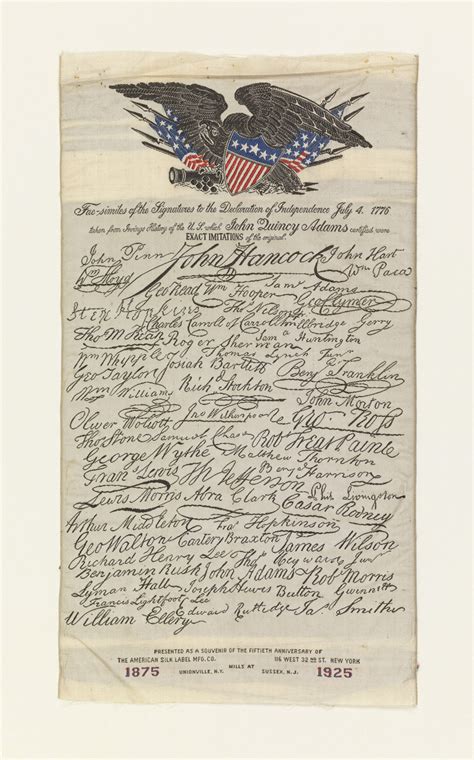 Fac-similes of the Signatures to the Declaration of Independence July 4. 1776
taken from Irvings History of the U.S. which John Quincy Adams certified were
EXACT IMITATIONS of the original.
John Penn John Hancock John Hart
Wm Floyd Wm Paca
Geo Read Wm Hooper Saml Adams Geo Clymer
Step Hopkins Tho Nelson
Charles Carroll of Carrollton Elbridge Gerry
Tho M:Kean Roger Sherman Sam Huntington
Wm Whipple Thomas Lynch Junr
Geo Taylor Josiah Bartlett Benj Franklin
Wm Williams Richd Stockton
John Morton
Oliver Wolcott Jno Witherspoon Geo Ross
Tho Stone Samuel Chase Rob Treat Paine
George Wythe Matthew Thornton
Frans Lewis Th Jefferson Benj Harrison
Lewis Morris Abra Clark Phil Livingston
Caesar Rodney
Arthur Middleton Fras Hopkinson
Geo Walton Carter Braxton James Wilson
Richard Henry Lee Thos Heyward Junr
Benjamin Rush John Adams Rob Morris
Lyman Hall Joseph Hewes Button Gwinnett
Francis Lightfoot Lee
William Ellery Edward Rutledge Jas Smith
PRESENTED AS A SOUVENIR OF THE FIFTIETH ANNIVERSARY OF
THE AMERICAN SILK LABEL MFG. CO. 116 WEST 32ND ST. NEW YORK
1875 UNIONVILLE, N.Y. MILLS AT SUSSEX, N.J. 1925